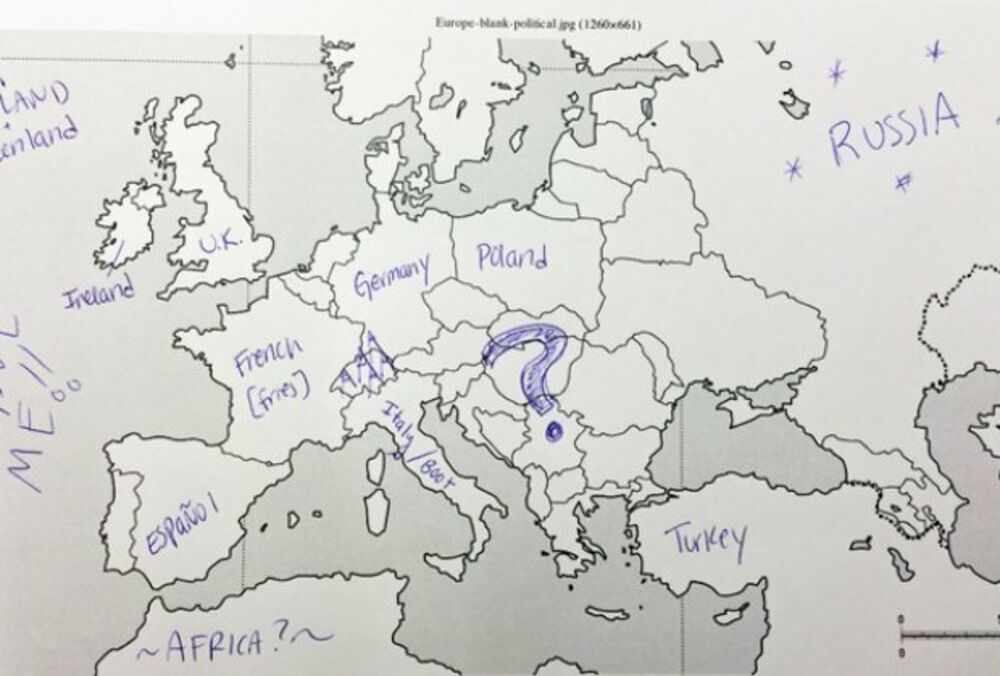 Europe-blank-political.jpg (1260x661)
RUSSIA
U.K.
Ireland
Germany
Poland
French
[fries]
Italy/Boot
ESPAÑOl
Turkey
~AFRICA?~
?
ME
0
0